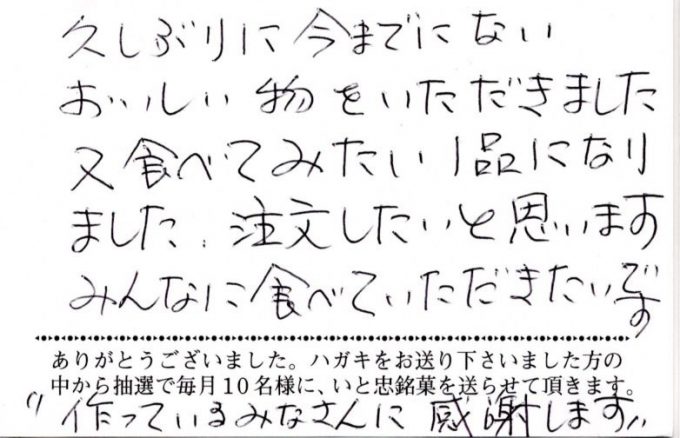 久しぶりに今までにない
おいしい物をいただきました
又食べてみたい1品になり
ました.注文したいと思います
みんなに食べていただきたいです
ありがとうございました。ハガキをお送り下さいました方の
中から抽選で毎月10名様に、いと忠銘菓を送らせて頂きます。
〃作っているみなさんに感謝します〃